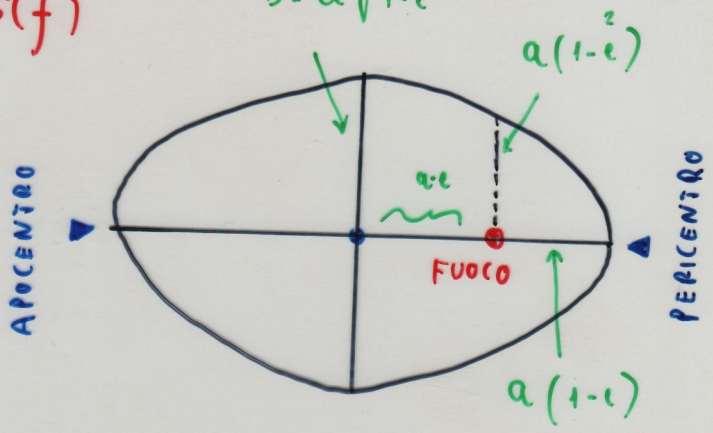 (f)
a(1-e²)
a·e
APOCENTRO
FUOCO
PERICENTRO
a(1-e)